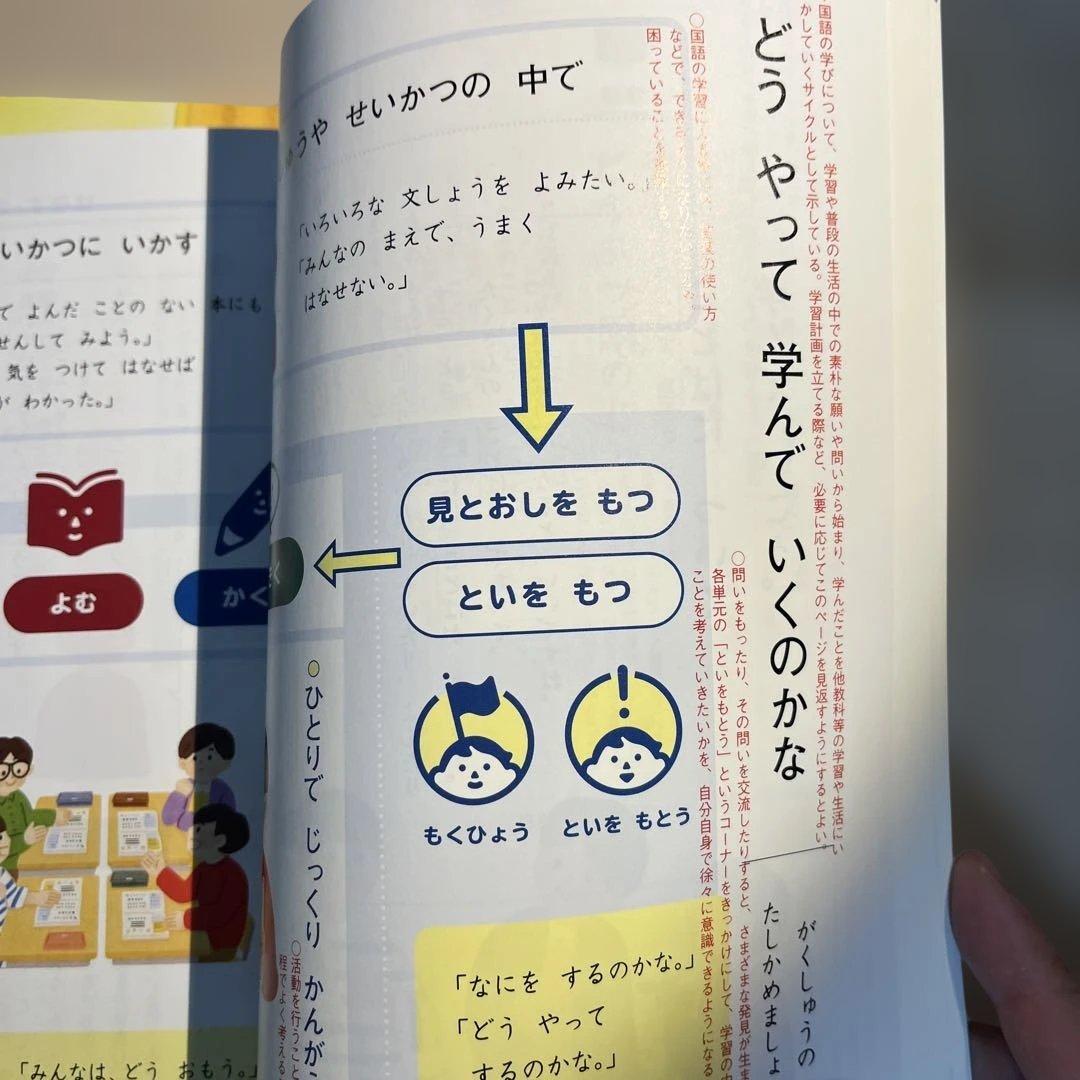 どう やって 学んで いくのかな
国語の学びについて、学習や普段の生活の中での素朴な願いや問いから始まり、学んだことを他教科等の学習や生活にい
かしていくサイクルとして示している。学習計画を立てる際など、必要に応じてこのページを見返すようにするとよい。
がくしゅうの
たしかめましょ
○国語の学習に
の使い方
などで、でき
困っていることを
うや せいかつの 中で
「いろいろな 文しょうを よみたい。
「みんなの まえで、うまく
はなせない。」
見とおしを もつ
といを もつ
もくひょう
といを もとう
○問いをもったり、その問いを交流したりすると、さまざまな発見が生ま
各単元の「といをもとう」というコーナーをきっかけにして、学習の中
ことを考えていきたいかを、自分自身で徐々に意識できるようになる
「なにを するのかな。」
「どう やって
するのかな。」
ひとりで じっくり かんが
○活動を行うこと
程でよく考える
いかつに いかす
で よんだ ことの ない 本にも
せんして みよう。」
気を つけて はなせば
が わかった。」
よむ
かく
く
「みんなは、どう おもう。」